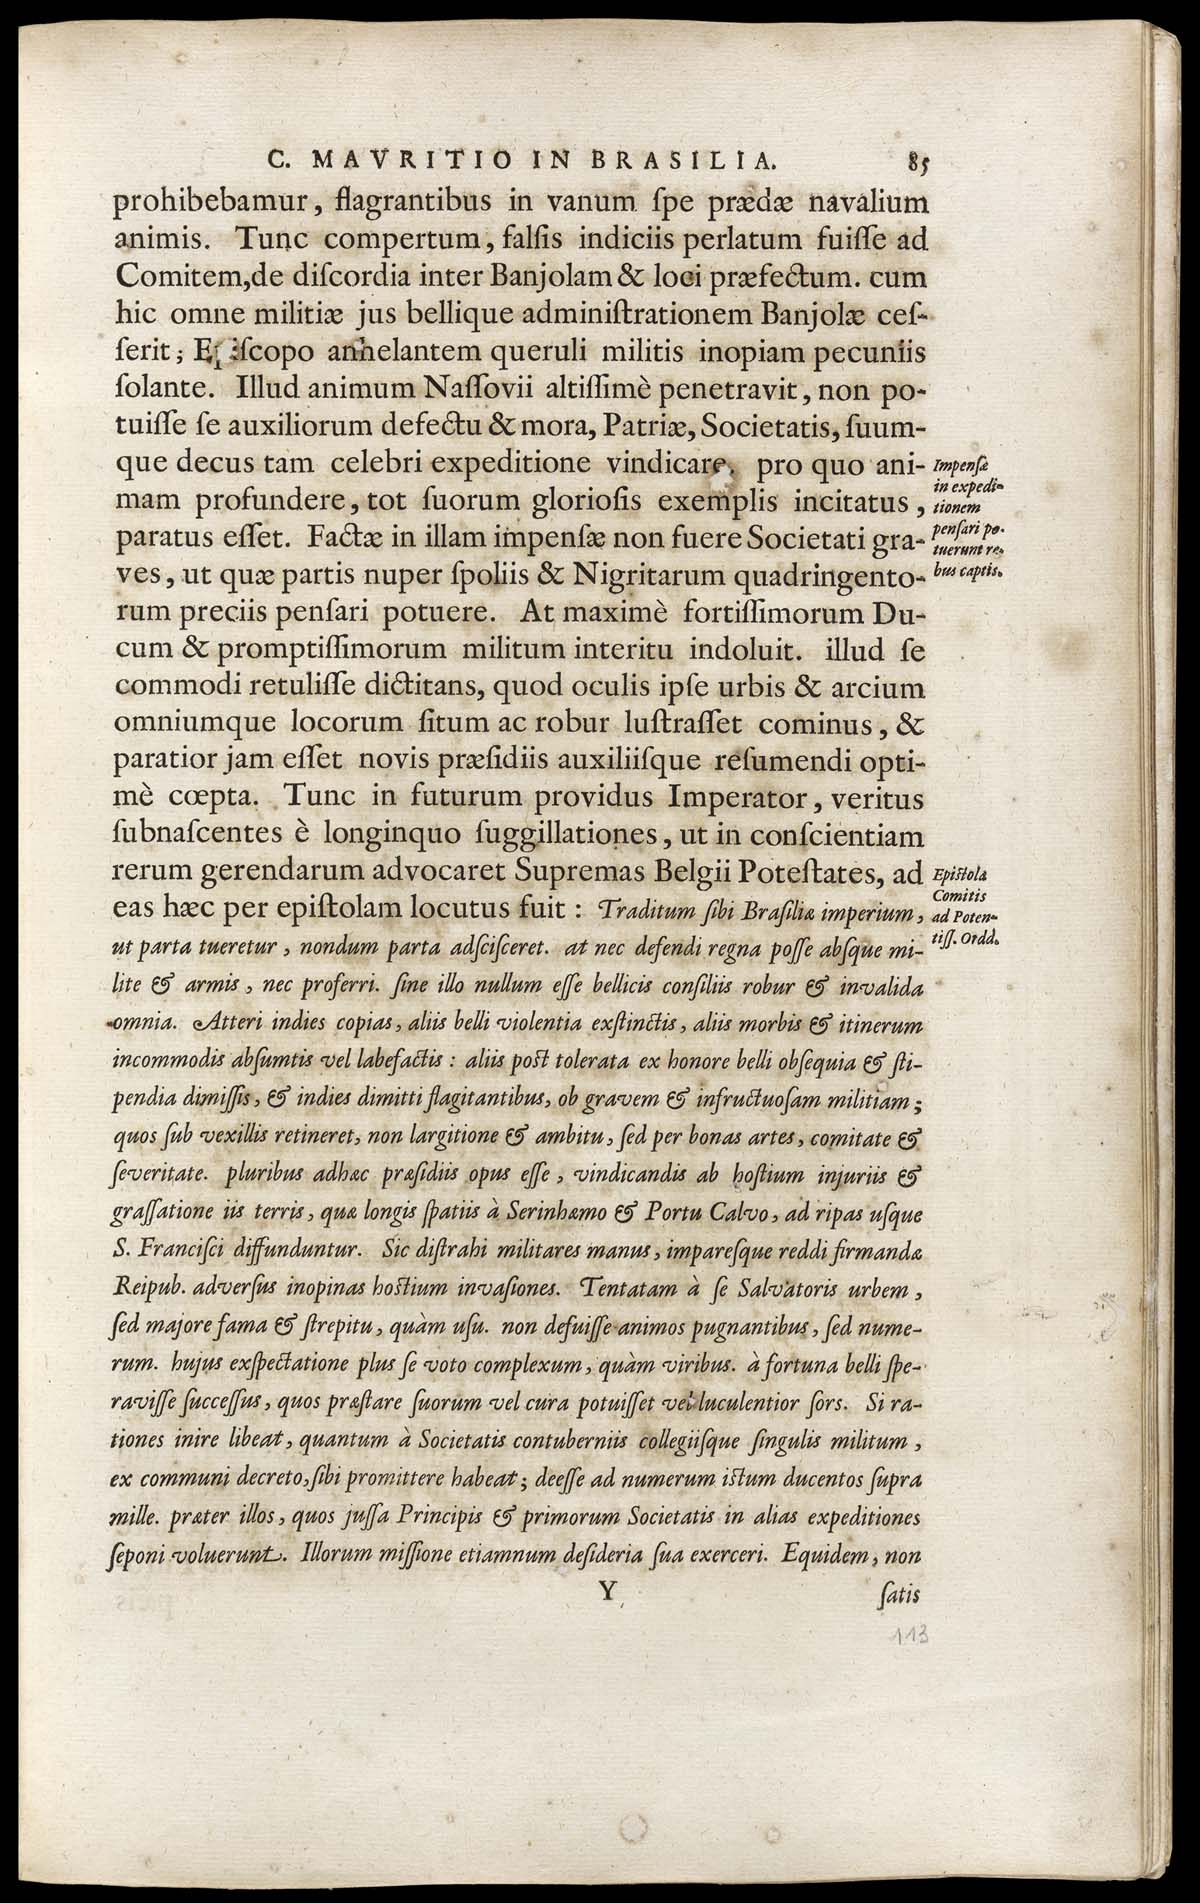 C. MAVRITIO IN BRASILIA. 85
prohibebamur, flagrantibus in vanum ſpe prædæ navalium
animis. Tunc compertum, falſis indiciis perlatum fuiſſe ad
Comitem, de diſcordia inter Banjolam & loci præfectum. cum
hic omne militiæ jus bellique adminiſtrationem Banjolæ ceſ-
ſerit; Epiſcopo anhelantem queruli militis inopiam pecuniis
ſolante. Illud animum Naſſovii altiſſimè penetravit, non po-
tuiſſe ſe auxiliorum defectu & mora, Patriæ, Societatis, ſuum-
que decus tam celebri expeditione vindicare, pro quo ani-
mam profundere, tot ſuorum glorioſis exemplis incitatus,
paratus eſſet. Factæ in illam impenſæ non fuere Societati gra-
ves, ut quæ partis nuper ſpoliis & Nigritarum quadringento-
rum preciis penſari potuere. At maximè fortiſſimorum Du-
cum & promptiſſimorum militum interitu indoluit. illud ſe
commodi retuliſſe dictitans, quod oculis ipſe urbis & arcium
omniumque locorum ſitum ac robur luſtraſſet cominus, &
paratior jam eſſet novis præſidiis auxiliiſque reſumendi opti-
mè cœpta. Tunc in futurum providus Imperator, veritus
ſubnaſcentes è longinquo ſuggillationes, ut in conſcientiam
rerum gerendarum advocaret Supremas Belgii Poteſtates, ad
eas hæc per epiſtolam locutus fuit: Traditum ſibi Braſiliæ imperium,
ut parta tueretur, nondum parta adſciſceret. at nec defendi regna poſſe abſque mi-
lite & armis, nec proferri. ſine illo nullum eſſe bellicis conſiliis robur & invalida
omnia. Atteri indies copias, aliis belli violentia exſtinctis, aliis morbis & itinerum
incommodis abſumtis vel labefactis: aliis poſt tolerata ex honore belli obſequia & ſti-
pendia dimiſſis, & indies dimitti flagitantibus, ob gravem & infructuoſam militiam;
quos ſub vexillis retineret, non largitione & ambitu, ſed per bonas artes, comitate &
ſeveritate. pluribus adhæc præſidiis opus eſſe, vindicandis ab hoſtium injuriis &
graſſatione iis terris, quæ longis ſpatiis à Serinhæmo & Portu Calvo, ad ripas uſque
S. Franciſci diffunduntur. Sic diſtrahi militares manus, impareſque reddi firmandæ
Reipub. adverſus inopinas hoſtium invaſiones. Tentatam à ſe Salvatoris urbem,
ſed majore fama & ſtrepitu, quàm uſu. non defuiſſe animos pugnantibus, ſed nume-
rum. hujus exſpectatione plus ſe voto complexum, quàm viribus. à fortuna belli ſpe-
raviſſe ſucceſſus, quos præſtare ſuorum vel cura potuiſſet vel luculentior ſors. Si ra-
tiones inire libeat, quantum à Societatis contuberniis collegiiſque ſingulis militum,
ex communi decreto, ſibi promittere habeat; deeſſe ad numerum iſtum ducentos ſupra
mille. præter illos, quos juſſa Principis & primorum Societatis in alias expeditiones
ſeponi voluerunt. Illorum miſſione etiamnum deſideria ſua exerceri. Equidem, non
Y ſatis
113
Impenſæ
in expedi-
tionem
penſari po-
tuerunt re-
bus captis.
Epiſtola
Comitis
ad Poten-
tiſſ. Ordd.